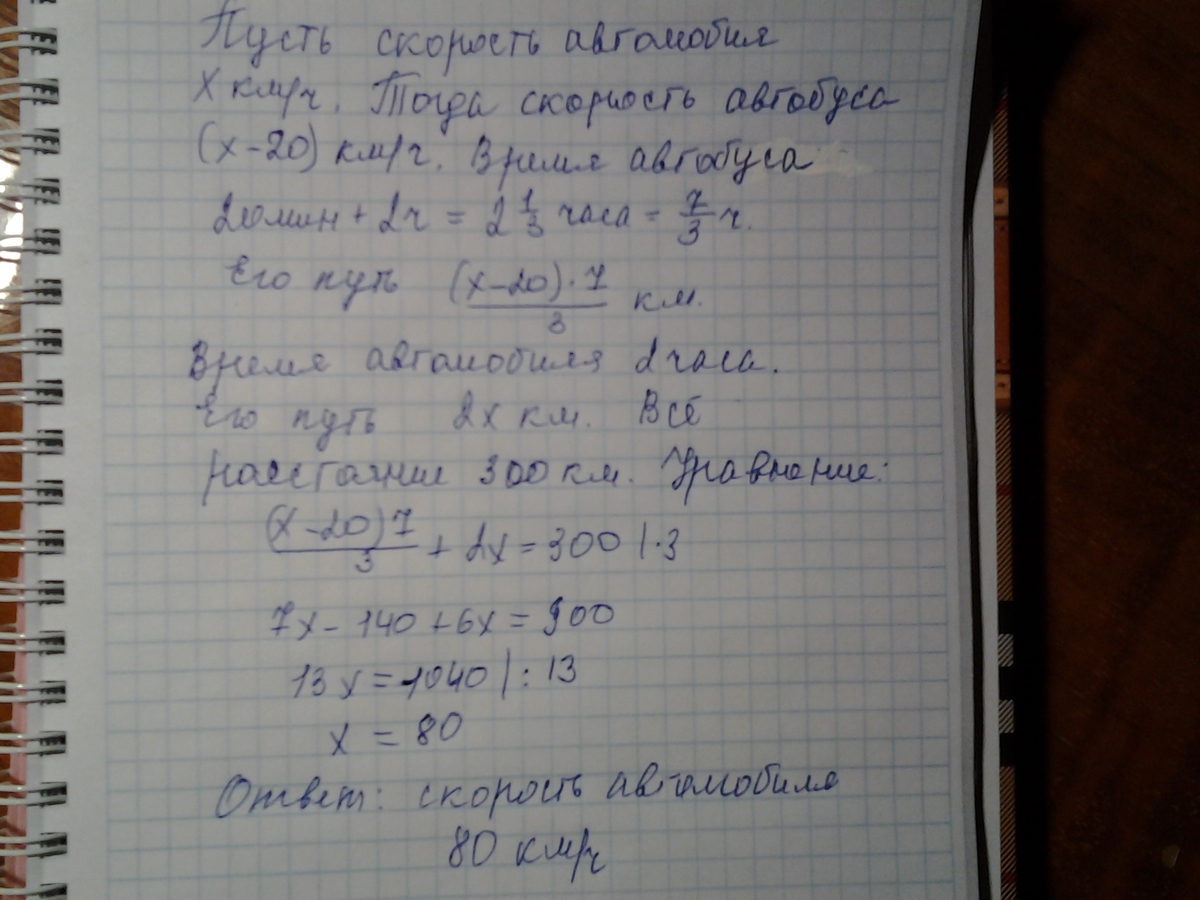 Пусть скорость автомобия
х км/ч. Тогда скорость автобуса
(х-20) км/ч. Время автобуса
20мин + 2ч = 2 1/3 часа = 7/3 ч.
Его путь (х-20)·7/3 км.
Время автомобиля 2 часа.
Его путь 2х км. Всё
расстояние 300 км. Уравнение:
(х-20)7/3 + 2х = 300 |·3
7х - 140 + 6х = 900
13х = 1040 | : 13
х = 80
Ответ: скорость автомобиля
80 км/ч